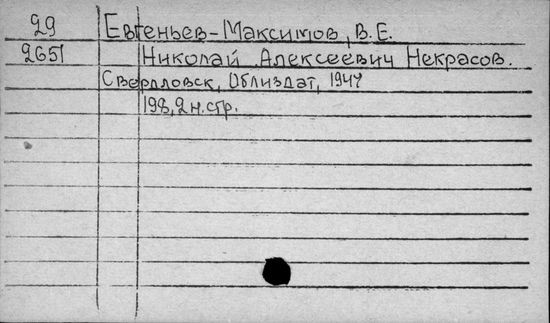 29 Евгеньев-Максимов, В.Е.
2651 Николай Алексеевич Некрасов.
Свердловск, Облиздат, 1947
198, 2 н. стр.